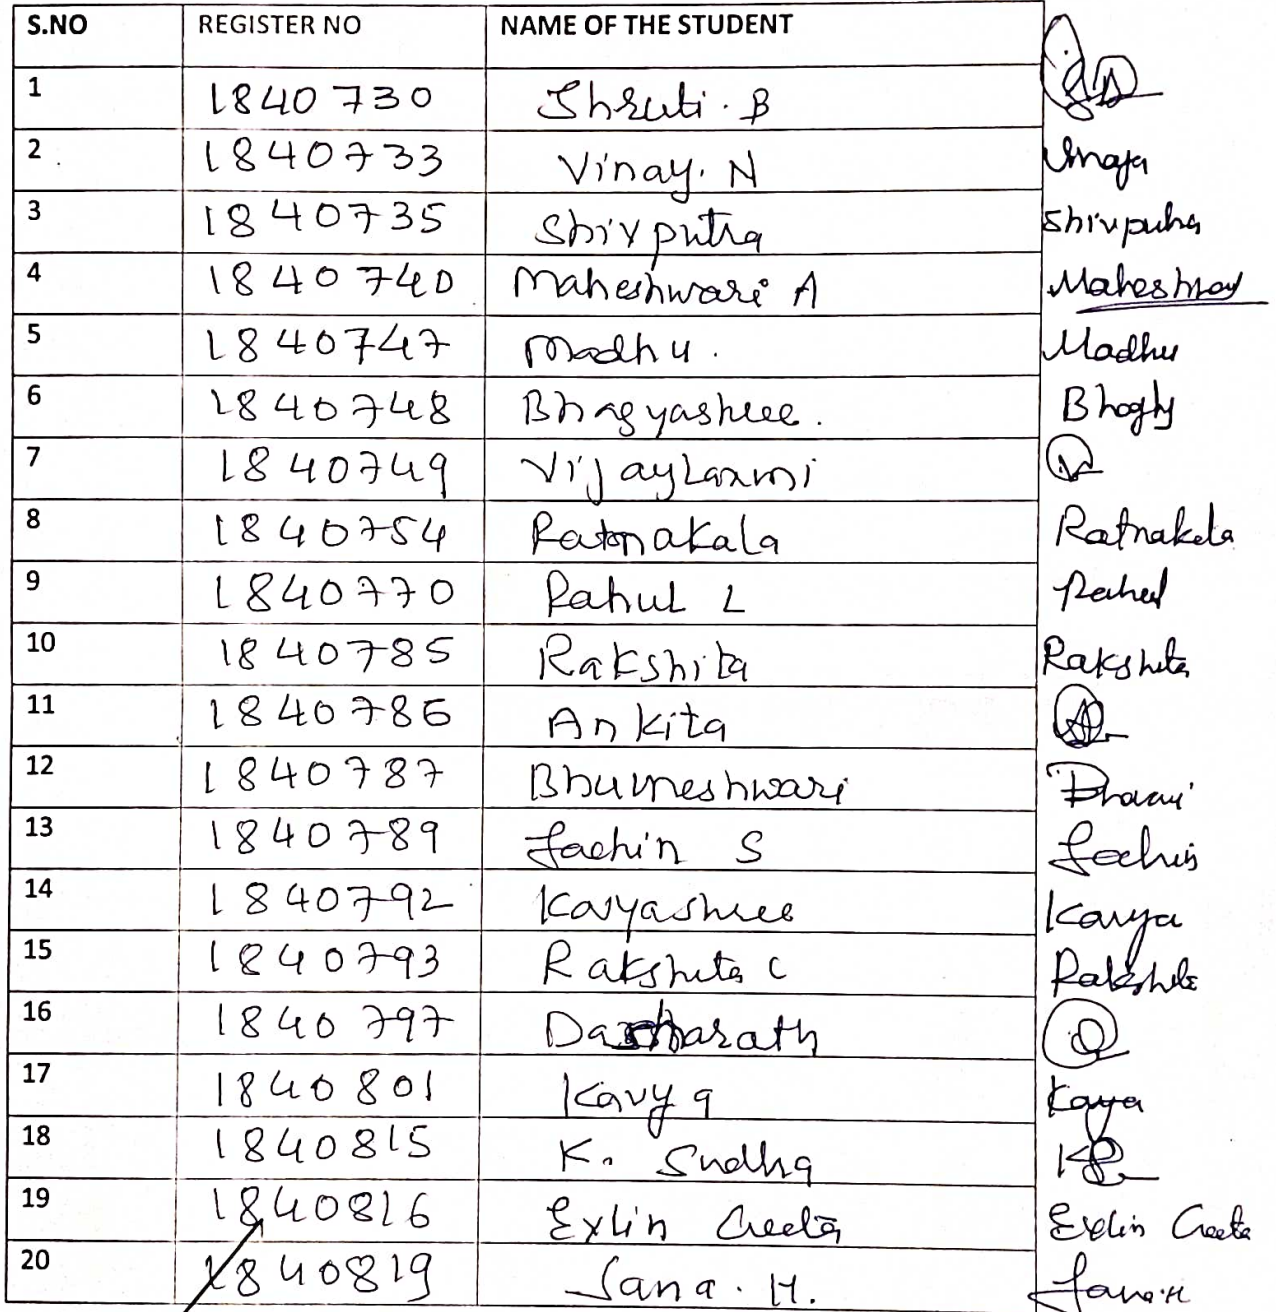 S.NO REGISTER NO NAME OF THE STUDENT
1 1840730 Shruti. B
2 1840733 Vinay. N
3 1840735 Shivputra Shivputra
4 1840740 Maheshwari A
5 1840747 Madhu. Madhu
6 1840748 Bhagyashree.
7 1840749 Vijaylaxmi
8 1840754 Ratnakala Ratnakala
9 1840770 Rahul L Rahul
10 1840785 Rakshita Rakshita
11 1840786 Ankita
12 1840787 Bhuvneshwari
13 1840789 Sachin S Sachin
14 1840792 Kavyashree Kavya
15 1840793 Rakshita C Rakshita
16 1840797 Dasharath
17 1840801 Kavya Kavya
18 1840815 K. Sudha
19 1840816 Exlin Creeta Exlin Creeta
20 1840819 Sana. H. Sana.H